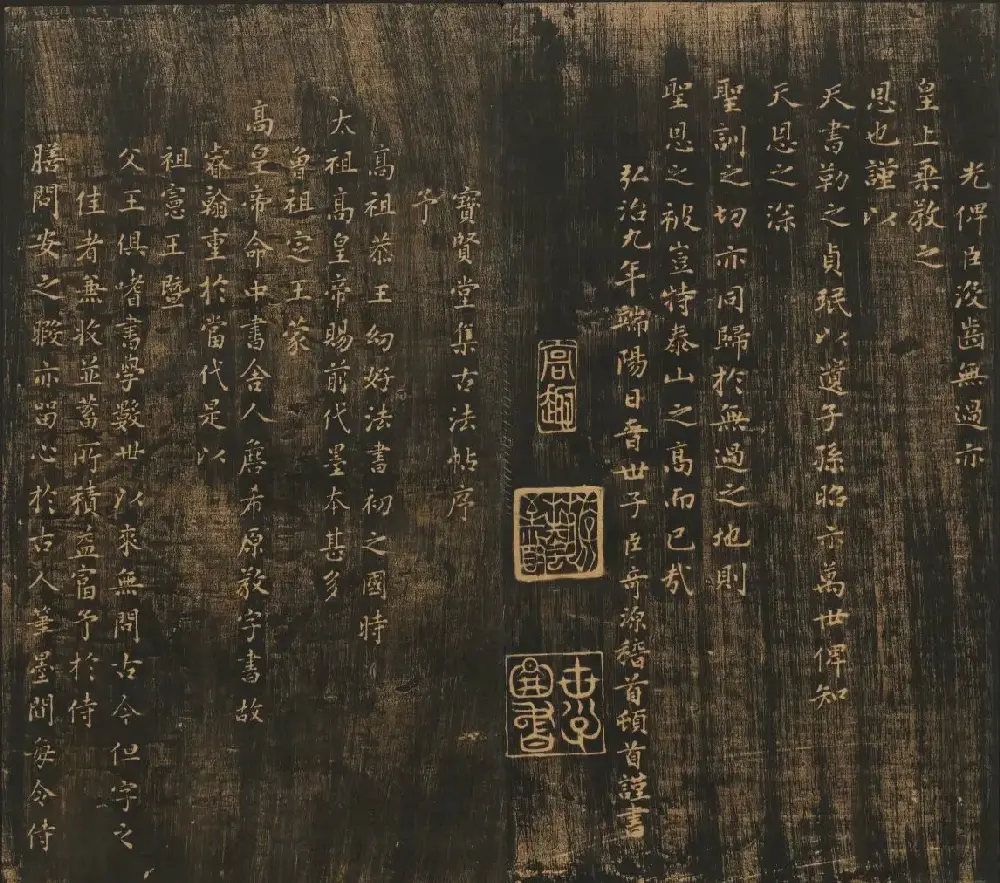 光俾臣沒齒無過亦
皇上乘教之
恩也謹以
天書勒之貞珉以遺子孫昭示萬世俾知
天恩之深
聖訓之切亦同歸於無過之地則
聖恩之被豈特泰山之高而已哉
弘治九年端陽日晉世子臣奇源稽首頓首謹書
世子
圖書
寶賢堂集古法帖序
予
高祖恭王幼好法書初之國時
太祖高皇帝賜前代墨本甚多
曾祖定王蒙
高皇帝命中書舍人詹希原教字書故
睿翰重於當代是以
祖憲王暨
父王俱嗜書學數世以來無問古今但字之
佳者兼收並蓄所積益富予於侍
膳問安之暇亦留心於古人筆墨間每令侍